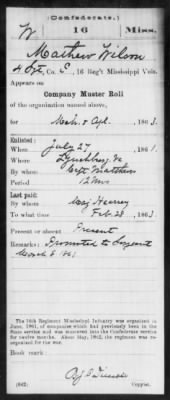 (Confederate.)
W 16 Miss.
Mathew Wilson
Co. E, 16 Reg't Mississippi Vols.
Appears on
Company Muster Roll
of the organization named above,
for Mch & Apl, 1863.
Enlisted:
When July 27, 1861.
Where Lynchburg, Va
By whom Capt Matthews
Period 12 Mos
Last paid:
By whom Maj Hearsey
To what time Feb. 28, 1863.
Present or absent Present
Remarks: Promoted to Sergeant
March
The 16th Regiment Mississippi Infantry was organized in
June, 1861, of companies which had previously been in the
State service and was mustered into the Confederate service
for twelve months. About May, 1862, the regiment was re-
organized for the war.
Book mark:
(642)
Copyist.